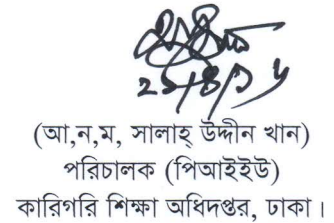 (আ,ন,ম, সালাহ্ উদ্দীন খান)
পরিচালক (পিআইইউ)
কারিগরি শিক্ষা অধিদপ্তর, ঢাকা।